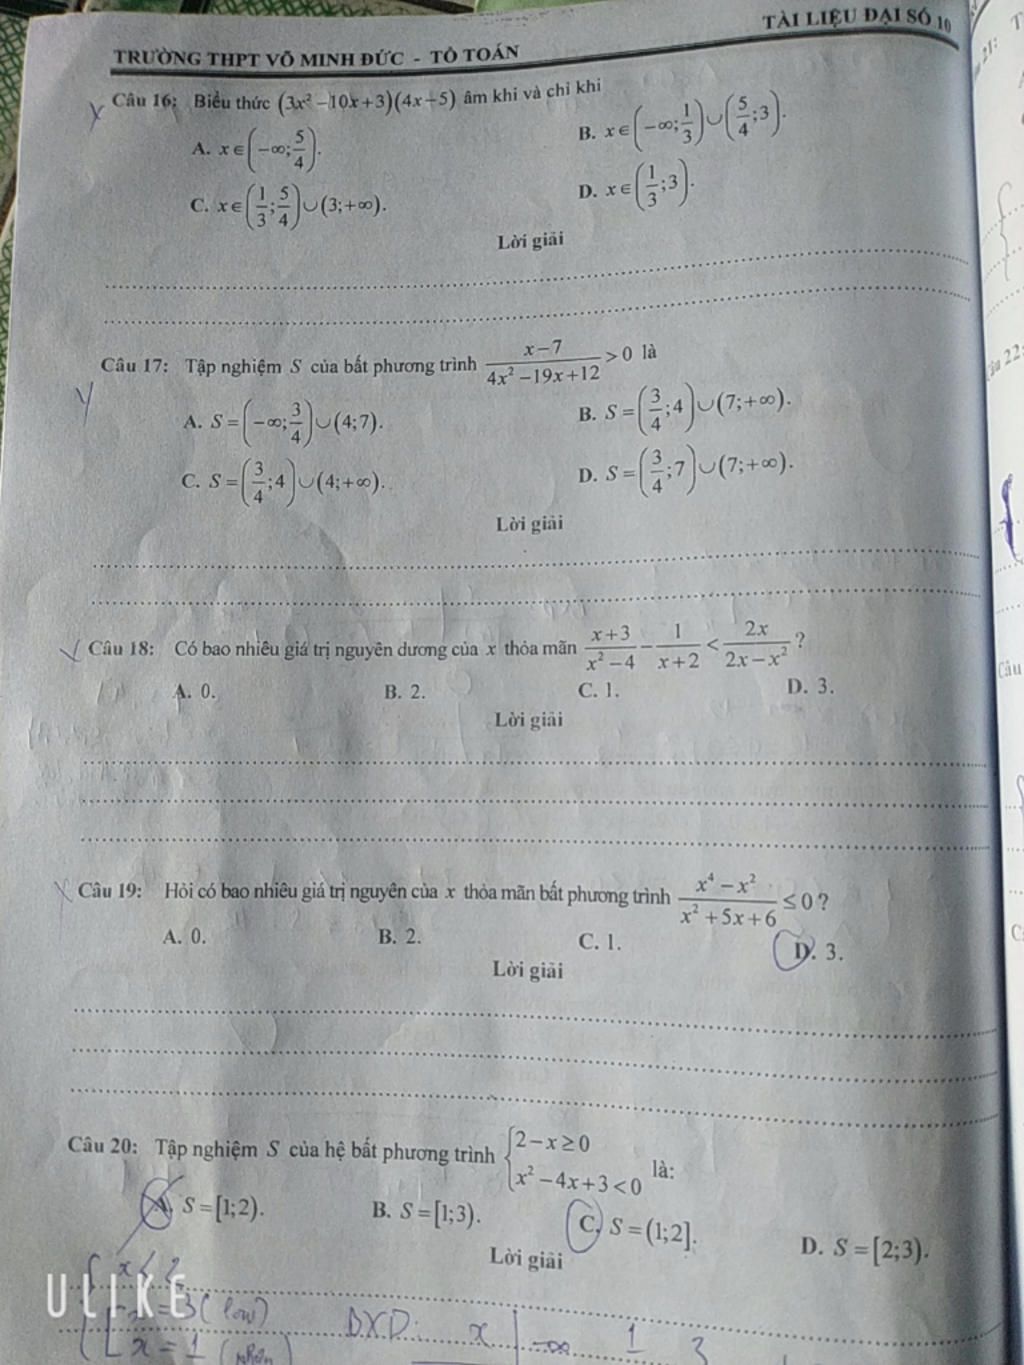 TÀI LIỆU ĐẠI SỐ 10
TRƯỜNG THPT VÕ MINH ĐỨC - TỔ TOÁN
Câu 16: Biểu thức (3x² −10x+3)(4x−5) âm khi và chỉ khi
A. x∈(−∞;5/4).
B. x∈(−∞;1/3)∪(5/4;3).
C. x∈(1/3;5/4)∪(3;+∞).
D. x∈(1/3;3).
Lời giải
Câu 17: Tập nghiệm S của bất phương trình (x−7)/(4x²−19x+12) >0 là
A. S=(−∞;3/4)∪(4;7).
B. S=(3/4;4)∪(7;+∞).
C. S=(3/4;4)∪(4;+∞).
D. S=(3/4;7)∪(7;+∞).
Lời giải
Câu 18: Có bao nhiêu giá trị nguyên dương của x thỏa mãn (x+3)/(x²−4) − 1/(x+2) < 2x/(2x−x²) ?
A. 0.
B. 2.
C. 1.
D. 3.
Lời giải
Câu 19: Hỏi có bao nhiêu giá trị nguyên của x thỏa mãn bất phương trình (x⁴−x²)/(x²+5x+6) ≤0 ?
A. 0.
B. 2.
C. 1.
D. 3.
Lời giải
Câu 20: Tập nghiệm S của hệ bất phương trình { 2−x≥0
x²−4x+3<0 là:
A. S=[1;2).
B. S=[1;3).
C. S=(1;2].
D. S=[2;3).
Lời giải
ULIKE
BXD: x −∞ 1 3
x = 1
21:
22:
Câu